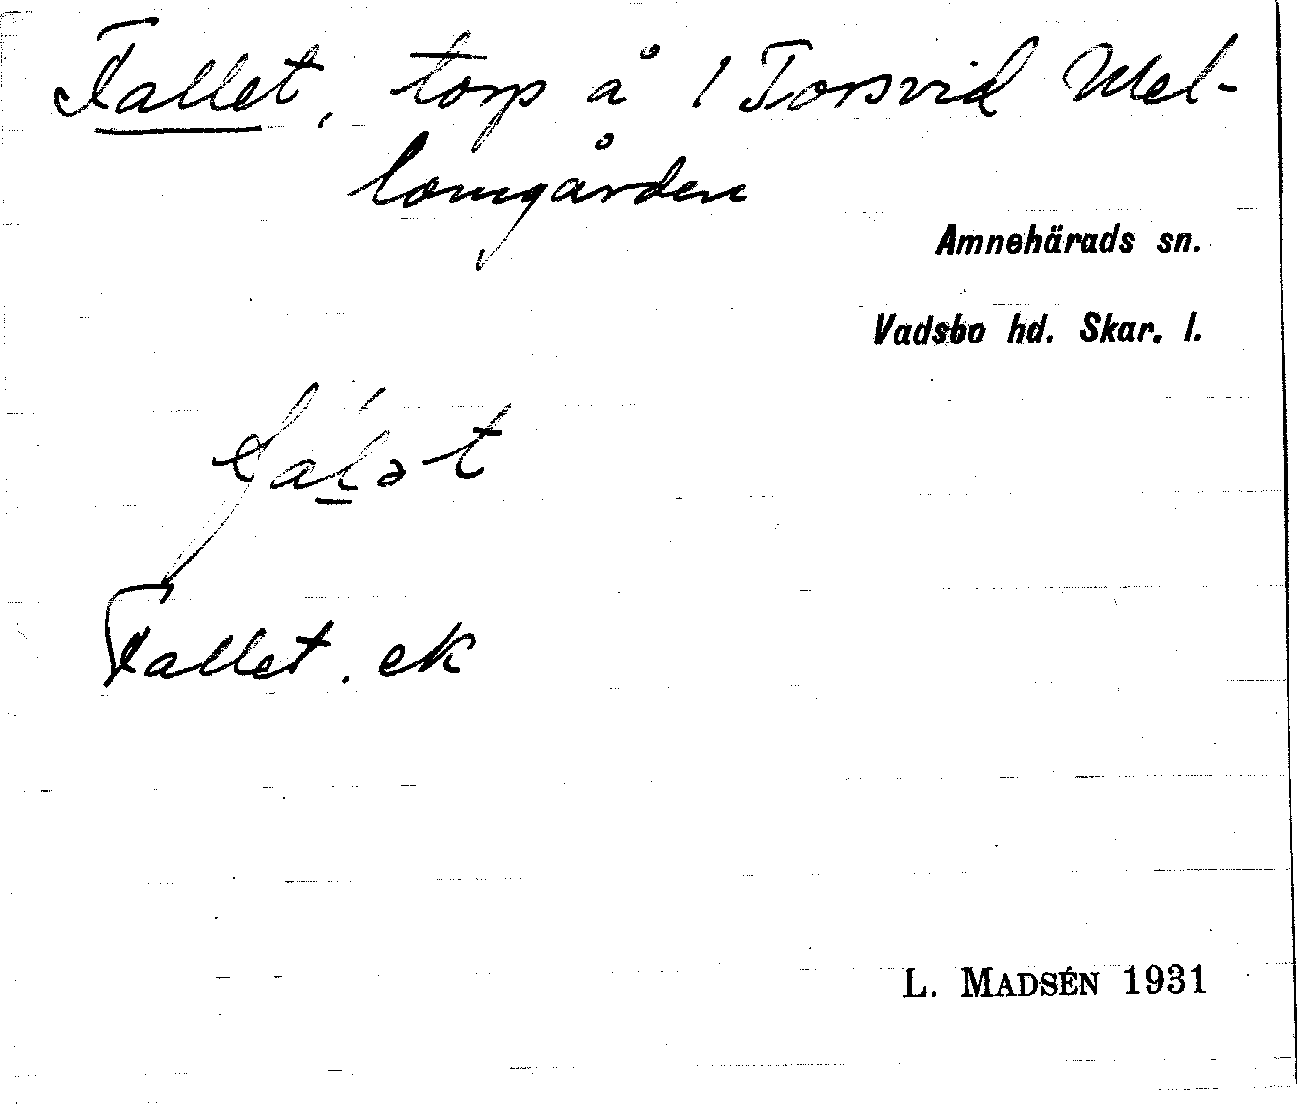 Fallet, torp å 1 Torsvid Mel-
lomgården
Amnehärads sn.
Vadsbo hd. Skar. l.
Fallet. ek
L. MADSÉN 1931